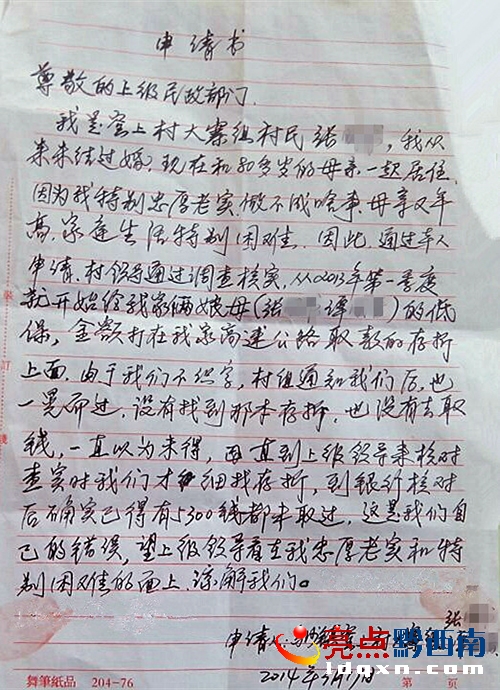 申请书
尊敬的上级民政部门.
我是窑上村大寨组村民张 , 我从
来未结过婚. 现在和80多岁的母亲一起居住.
因为我特别忠厚老实. 做不成啥事. 母亲又年
高. 家庭生活特别困难. 因此. 通过本人
申请. 村领导通过调查核实, 从2013年第一季度
就开始给我家俩娘母(张 谭 )的低
保, 金额打在我家高速公路取款的存折
上面. 由于我们不识字, 村组通知我们后. 也
一晃而过. 没有找到那本存折. 也没有去取
钱, 一直以为未得, 直到上级领导来核对
查实时我们才细找存折, 到银行核对
后确实已得有5300钱都未取过, 这是我们自
己的错误, 望上级领导看在我忠厚老实和特
别困难的面上. 谅解我们。
张
申请人:
2014年
亮点黔西南
ldqxn.com
舞笔纸品 204-76 第 页
装 订 线